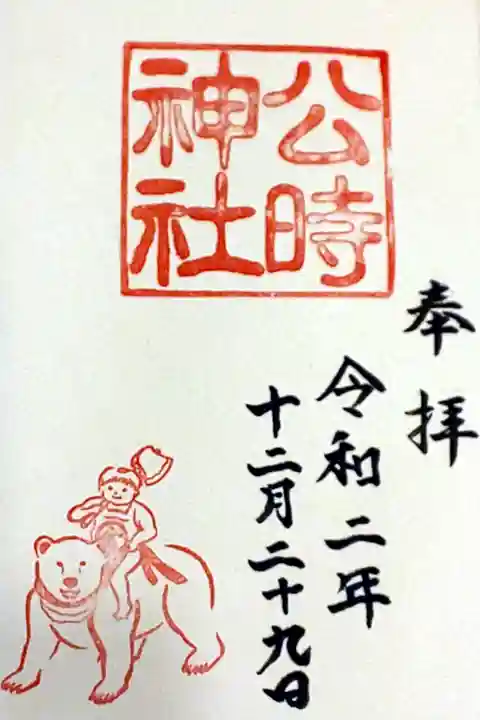 奉拝
令和二年
十二月二十九日
公時
神社